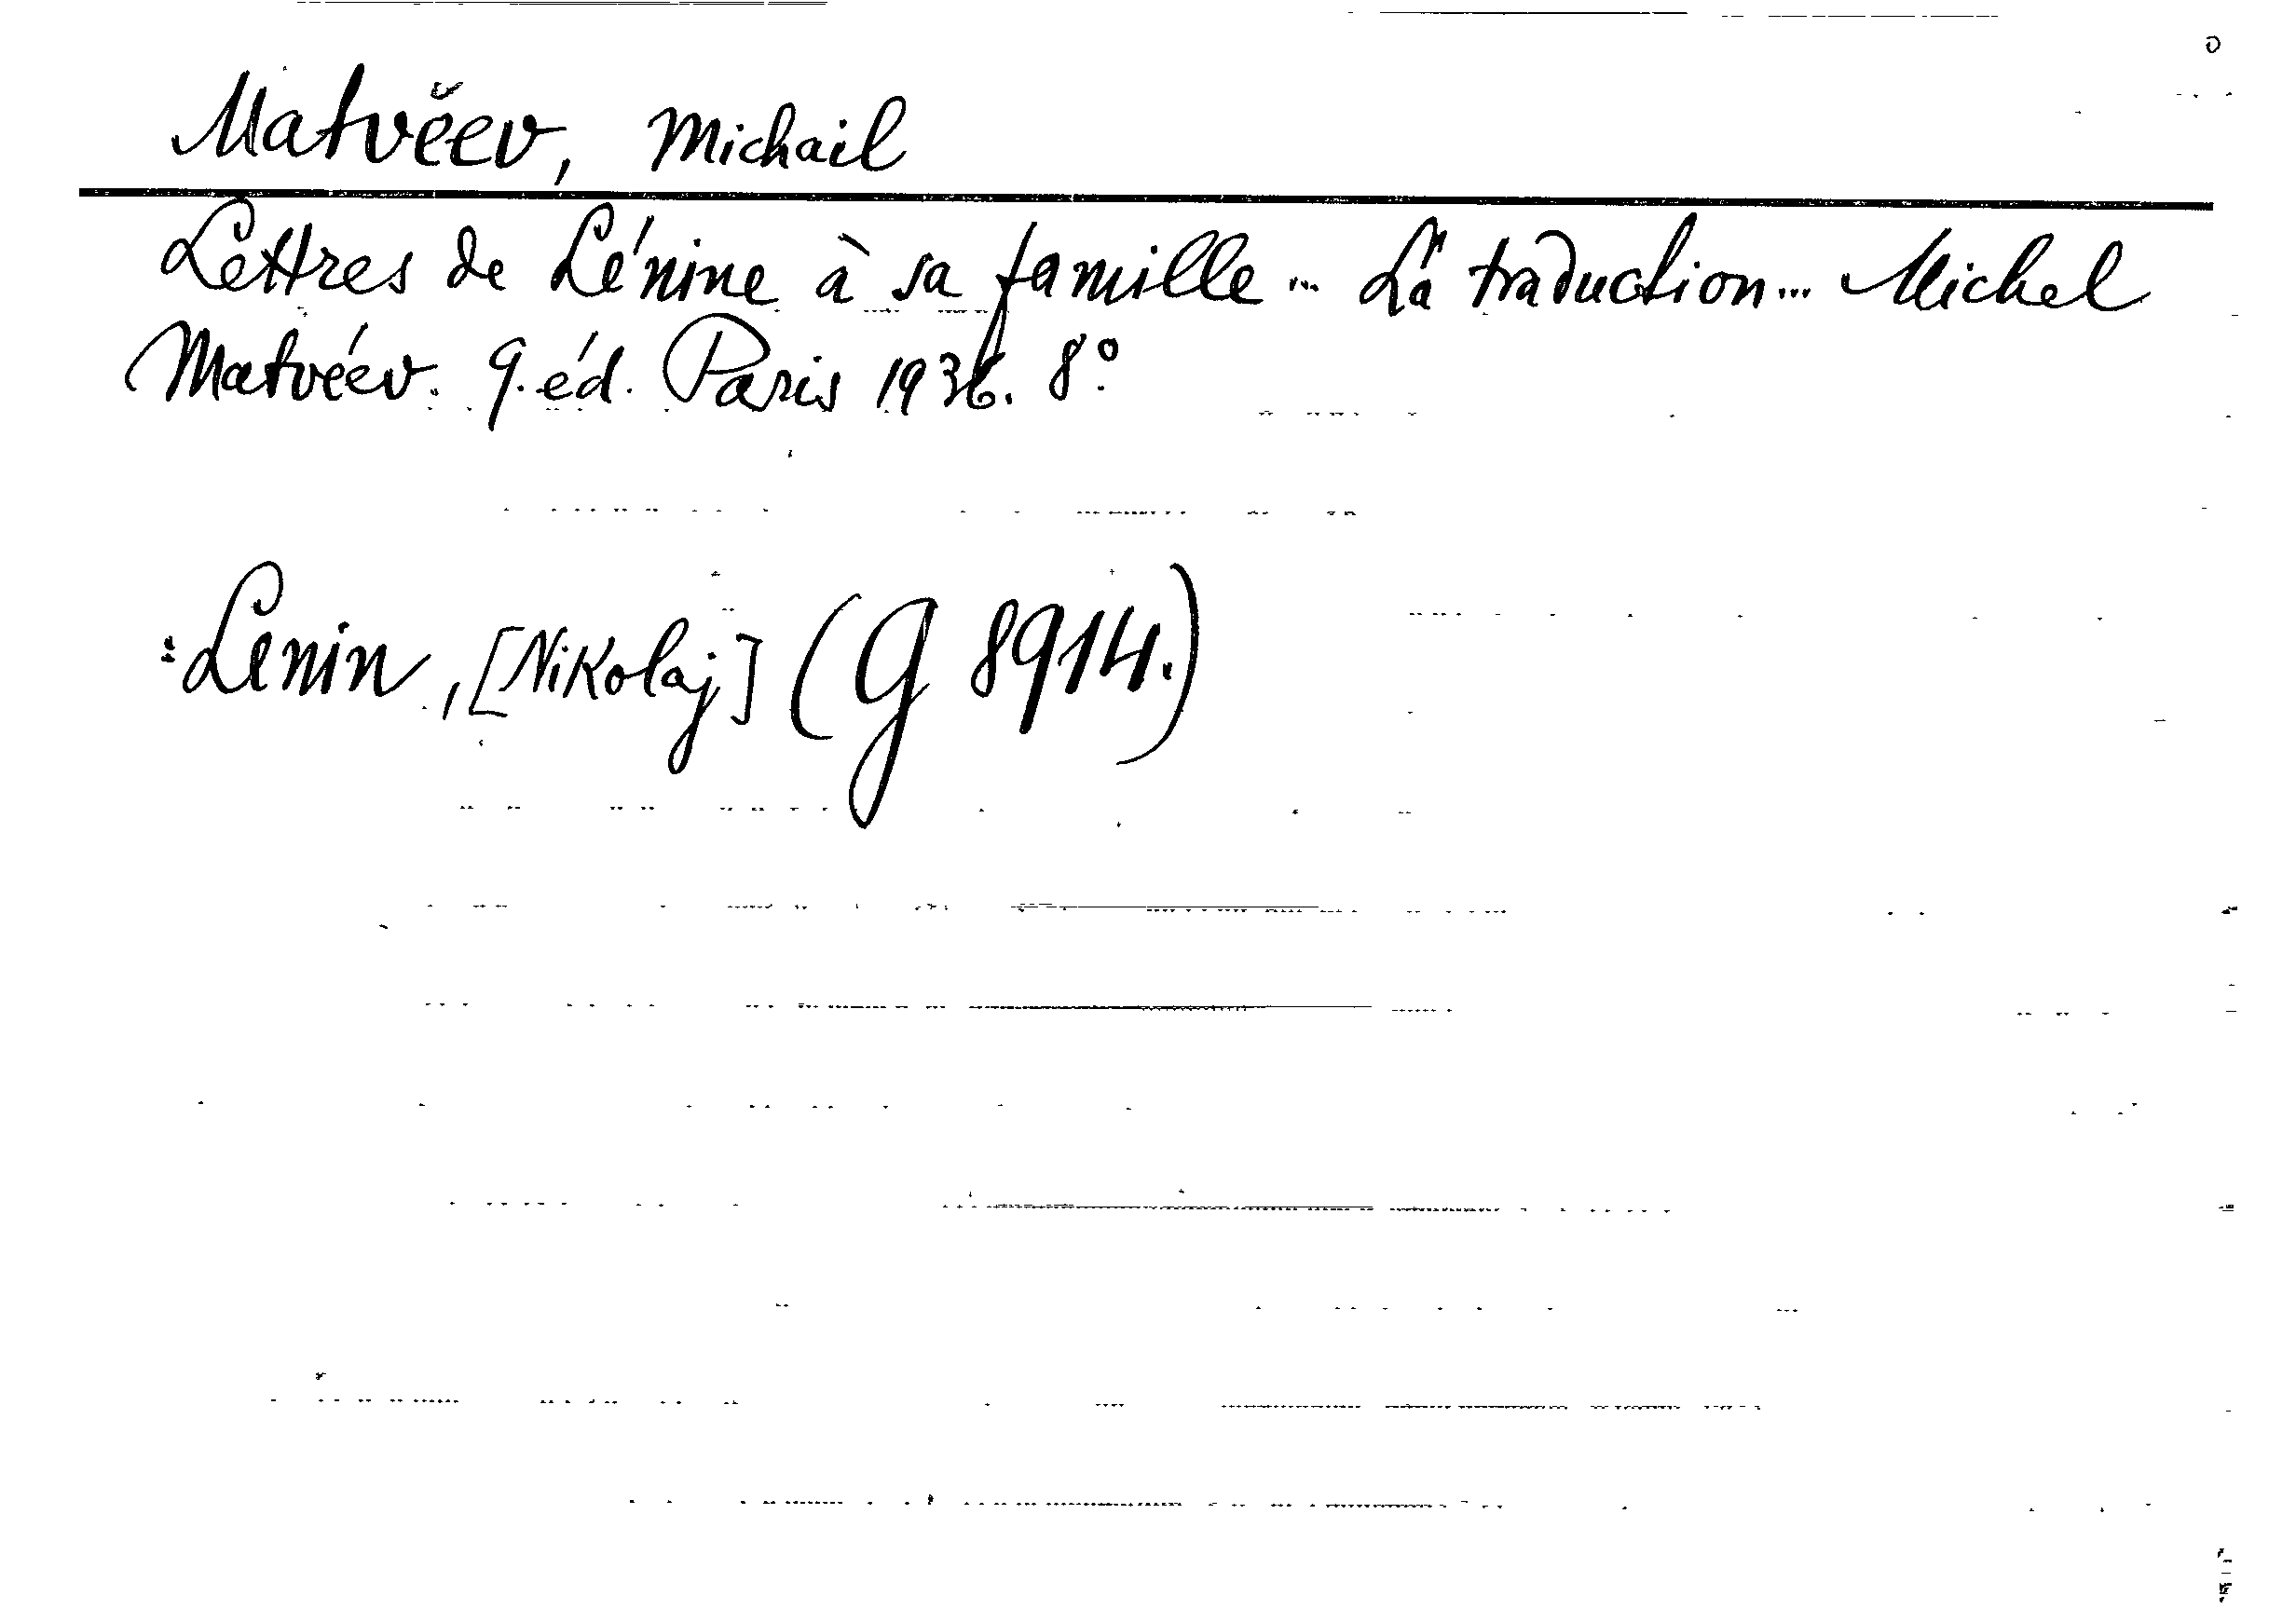 Matvěev, Michail
Lettres de Lénine à sa famille ... La traduction ... Michel
Matvéev. 9. éd. Paris 1936. 8°.
: Lenin, [Nikolaj] (G 8914.)